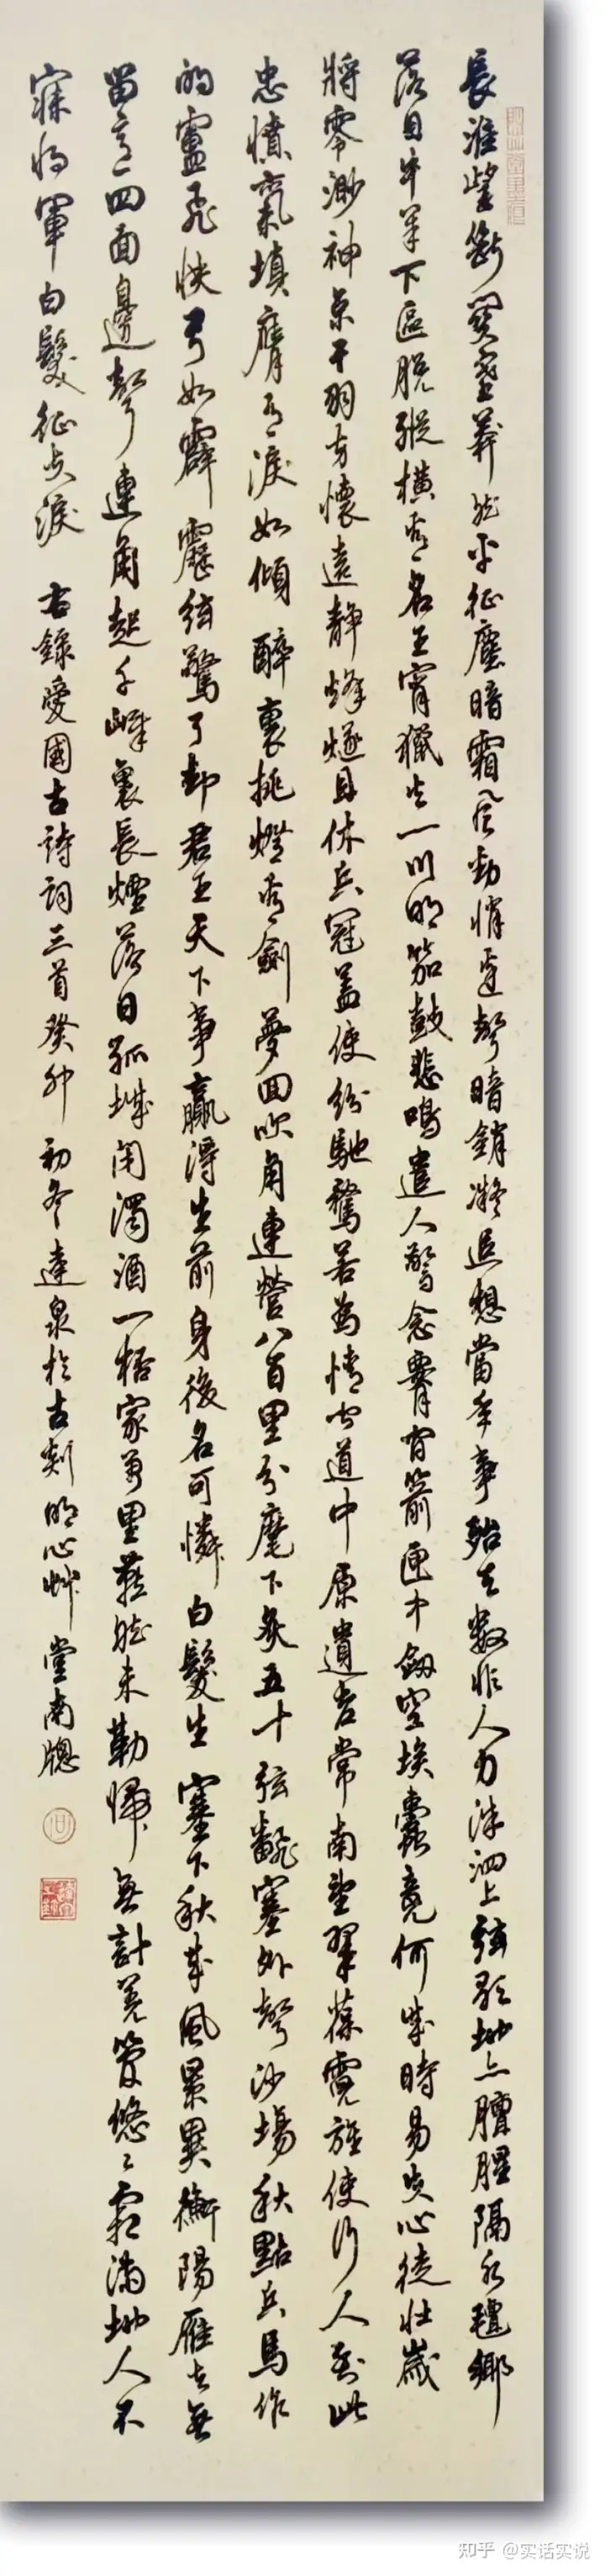 長淮望斷關塞莽然平征塵暗霜風勁悄邊聲暗銷凝追想當年事殆天數非人力洙泗上弦歌地亦膻腥隔水氈鄉
落日牛羊下區脫縱橫看名王宵獵火一川明笳鼓悲鳴遣人驚念腰間箭匣中劍空埃蠹竟何成時易失心徒壯歲
將零渺神京干羽方懷遠靜烽燧且休兵冠蓋使紛馳騖若為情聞道中原遺老常南望翠葆霓旌使行人到此
忠憤氣填膺有淚如傾 醉裏挑燈看劍夢回吹角連營八百里分麾下炙五十弦翻塞外聲沙場秋點兵馬作
的盧飛快弓如霹靂弦驚了却君王天下事贏得生前身後名可憐白髮生 塞下秋來風景異衡陽雁去無
留意四面邊聲連角起千嶂裏長煙落日孤城閉濁酒一桮家萬里燕然未勒歸無計羌管悠〻霜滿地人不
寐將軍白髮征夫淚 右錄愛國古詩詞三首癸卯初冬達泉於古剡明心艸堂南牕
知乎 @实话实说